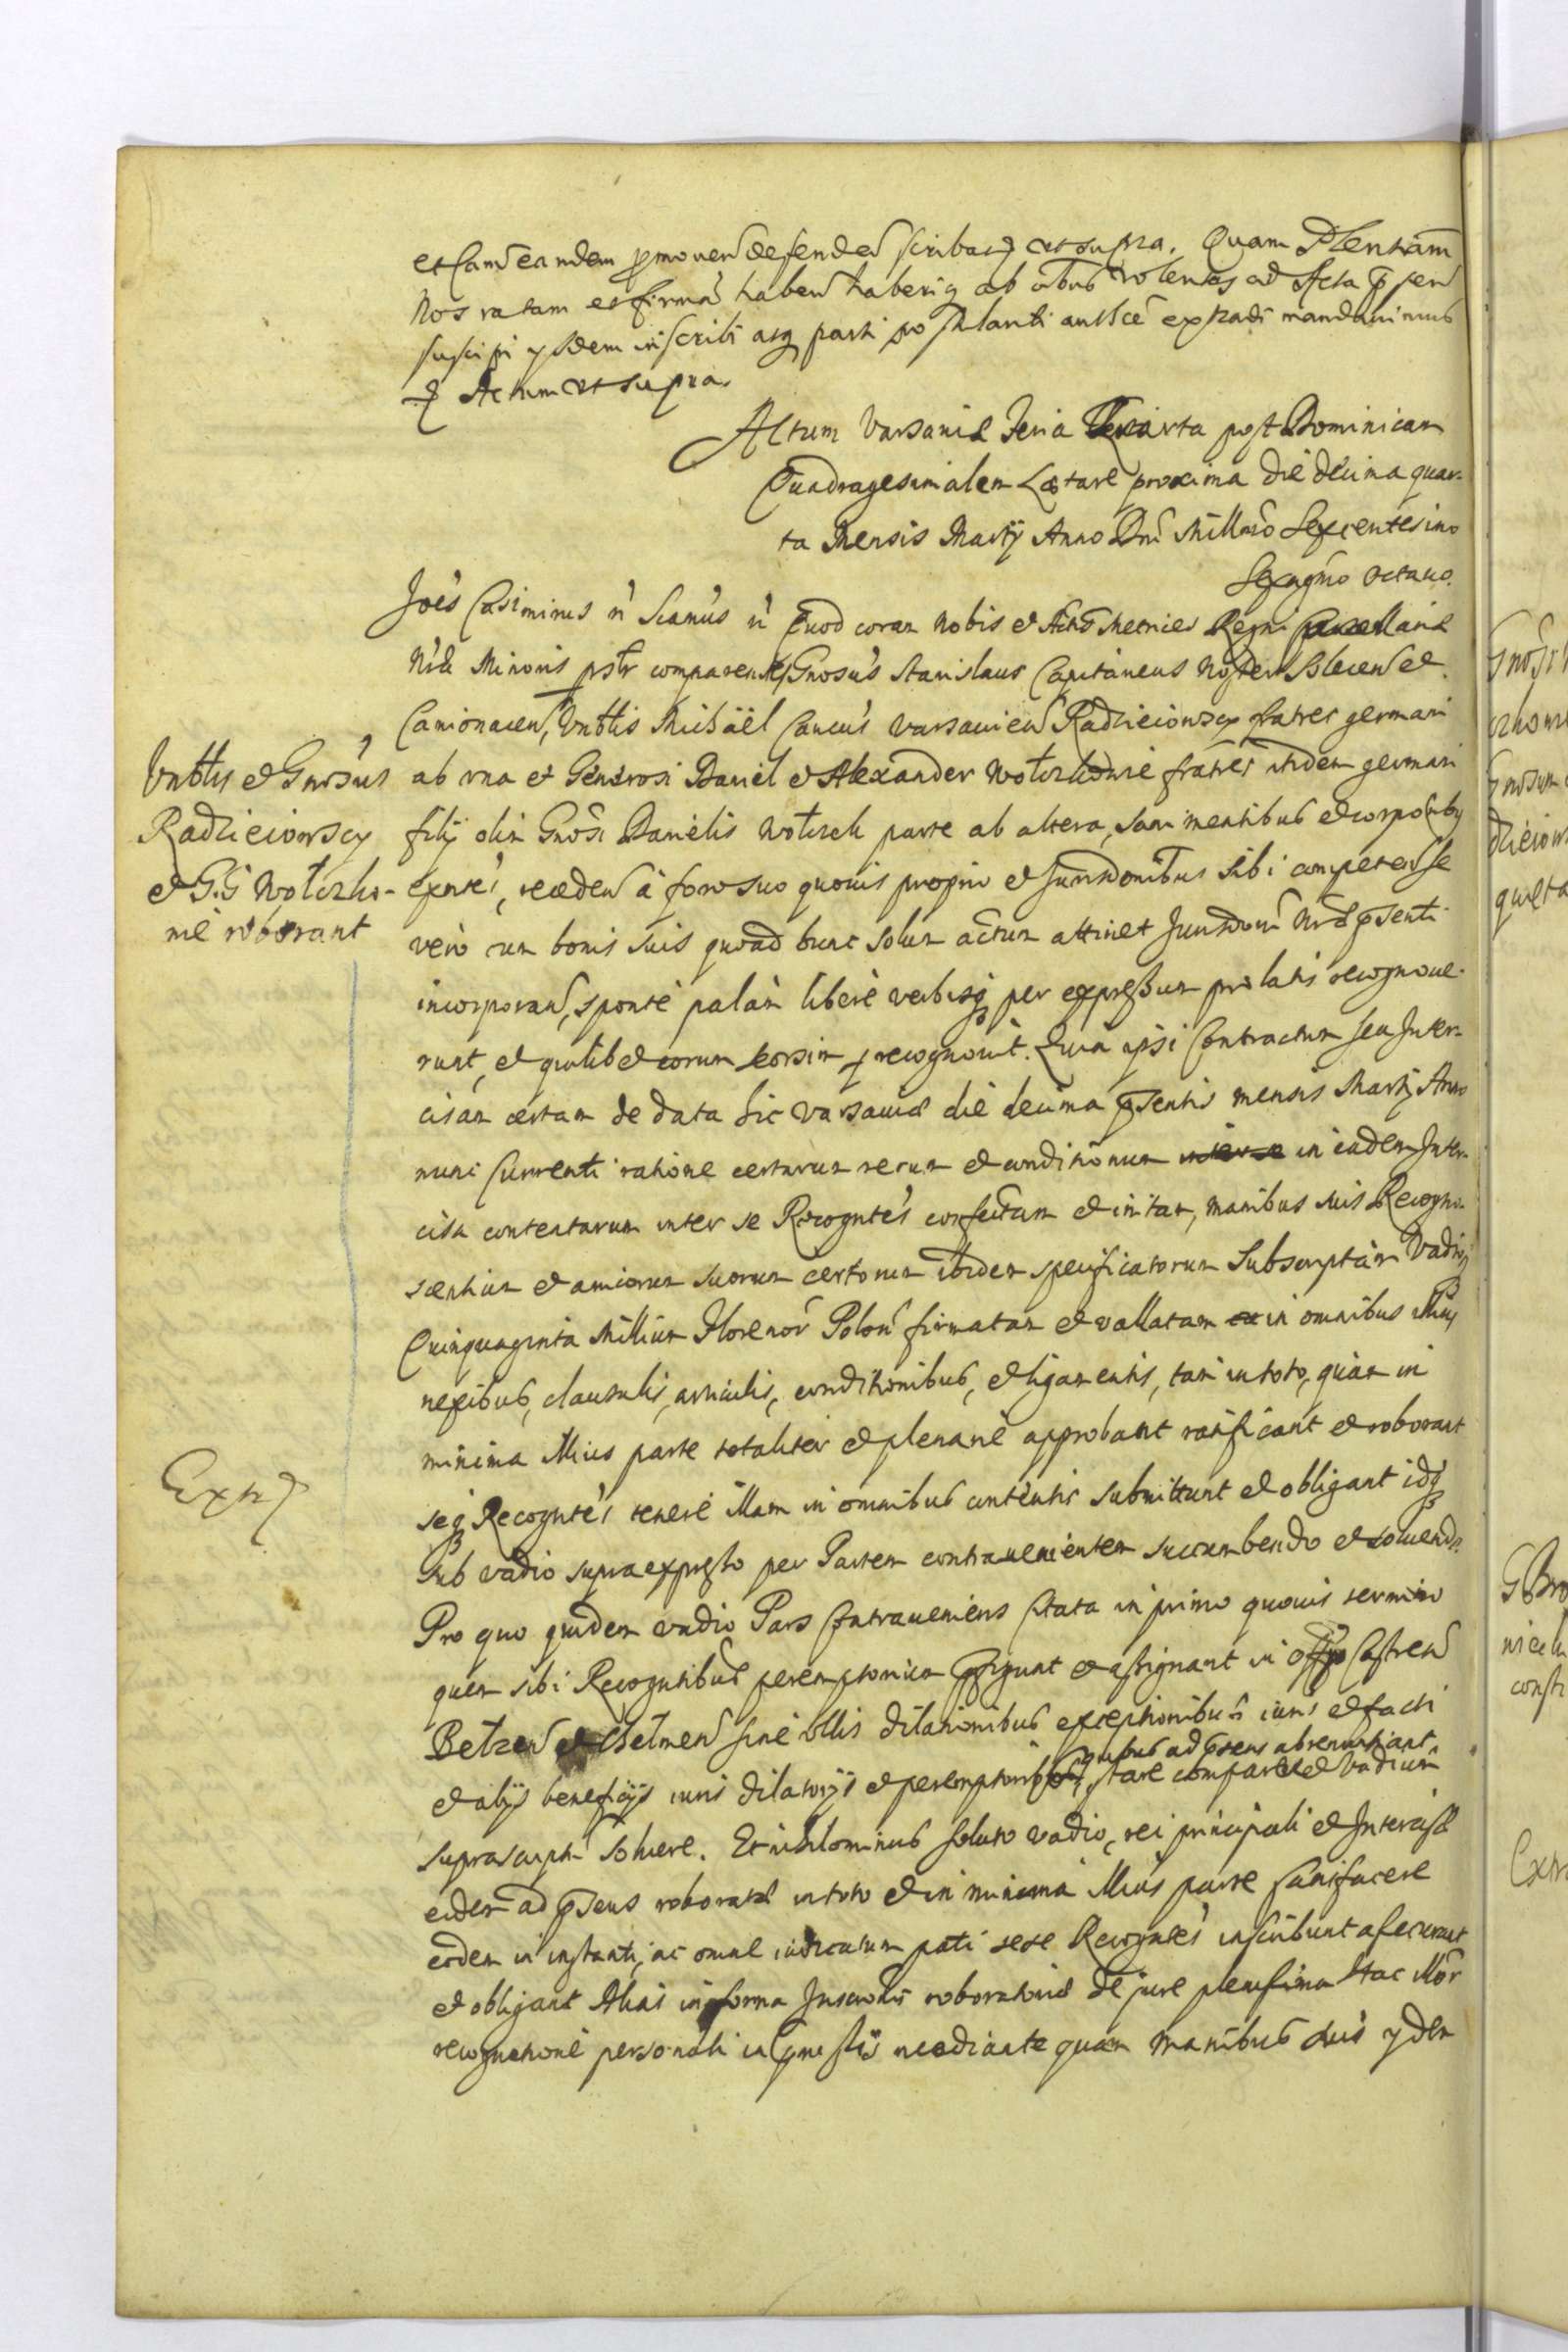 et eandem promouen defenden scribarq ut supra. Quam Plenham
Nos ratam et firmã haben haberiq ab oibus volentes ad Acta p̃sen
suscipi ysdem inscribi atq parti postulanti autscẽ extradi mandauimus
Actum ut supra.
Actum Varsauiæ Feria Quarta post Dominicam
Quadragesimalem Lætare proxima die decima quar-
ta Mensis Martij Anno Dni Millmo Sexcentesimo
Sexagmo octauo.
Joẽs Casimirus n̾ Scamus n̾ Quod coram Nobis et Actis Metrices Regni Cancellariæ
Nræ Minoris psltr comparentes Gnosus Stanislaus Capitaneus Noster Solecen et
Camionacen, Vrbtlis Michäel Cancus Varsauien Radzieiowscy fratres germani
ab vna et Generosi Daniel et Alexander Wołczkowie fratres itidem germani
filij olim Gnosi Danielis Wołczek parte ab altera, sani mentibus et corporibus
exntes, receden à foro suo quouis proprio et Jurisdonibus sibi competen se
vero cum bonis suis quoad hunc solum actum attinet Jurisdoni Nræ p̃senti
incorporan, sponte palam libere verbisq per expressum prolatis recognoue-
runt, et quilibet eorum seorsim recognouit. Quia ipsi Contractum seu Inter-
cisam certam de data hic Varsauiæ die decima p̃sentis mensis Martij Anno
nunc Currenti ratione certarum rerum et conditionum in eadem Inter-
cisa contentarum inter se Recogntes confectam et initam, manibus suis Recogno-
scentium et amicorum suorum certorum ibidem specificatorum Subscriptam Vadioq
Quinquaginta Millium Florenor Polon firmatam et vallatam in omnibus illius
nexibus, clausulis, articulis, conditionibus, et ligamentis, tam in toto, quam in
minima illius parte totaliter et plenarie approbant ratificant et roborant
seq Recogntes tenere illam in omnibus contentis submittunt et obligant idq
sub vadio supraexpresso per Partem contrauenientem succumbendo et soluendo.
Pro quo quidem vadio Pars Contraueniens Citata in primo quouis termino
quem sibi Recogntibus peremptorium p̃figunt et assignant in offo Castren
Betzen et Chełmen sine vllis dilationibus exceptionibus iuris et facti
quibus ad p̃sens abrenuntiant
et alijs beneficijs iuris dilatorijs et peremptorijs stare comparere et Vadium
suprascriptũ soluere. Et nihilominus soluto vadio, rei principali et Intercisæ
eidem ad p̃sens roboratæ in toto et in minima illius parte satisfacere
eidem in instanti, ac omne iudicatum pati sese Recogntes inscribunt assecurant
et obligant Alias in forma Inscronis roboratoriæ de jure plenissima Hac illor
recognitione personali mediante quam manibus suis ydem
Vrbtlis et Gnosus
Radzieiowscy
et G.G Wołczko-
wie roborant
Extr